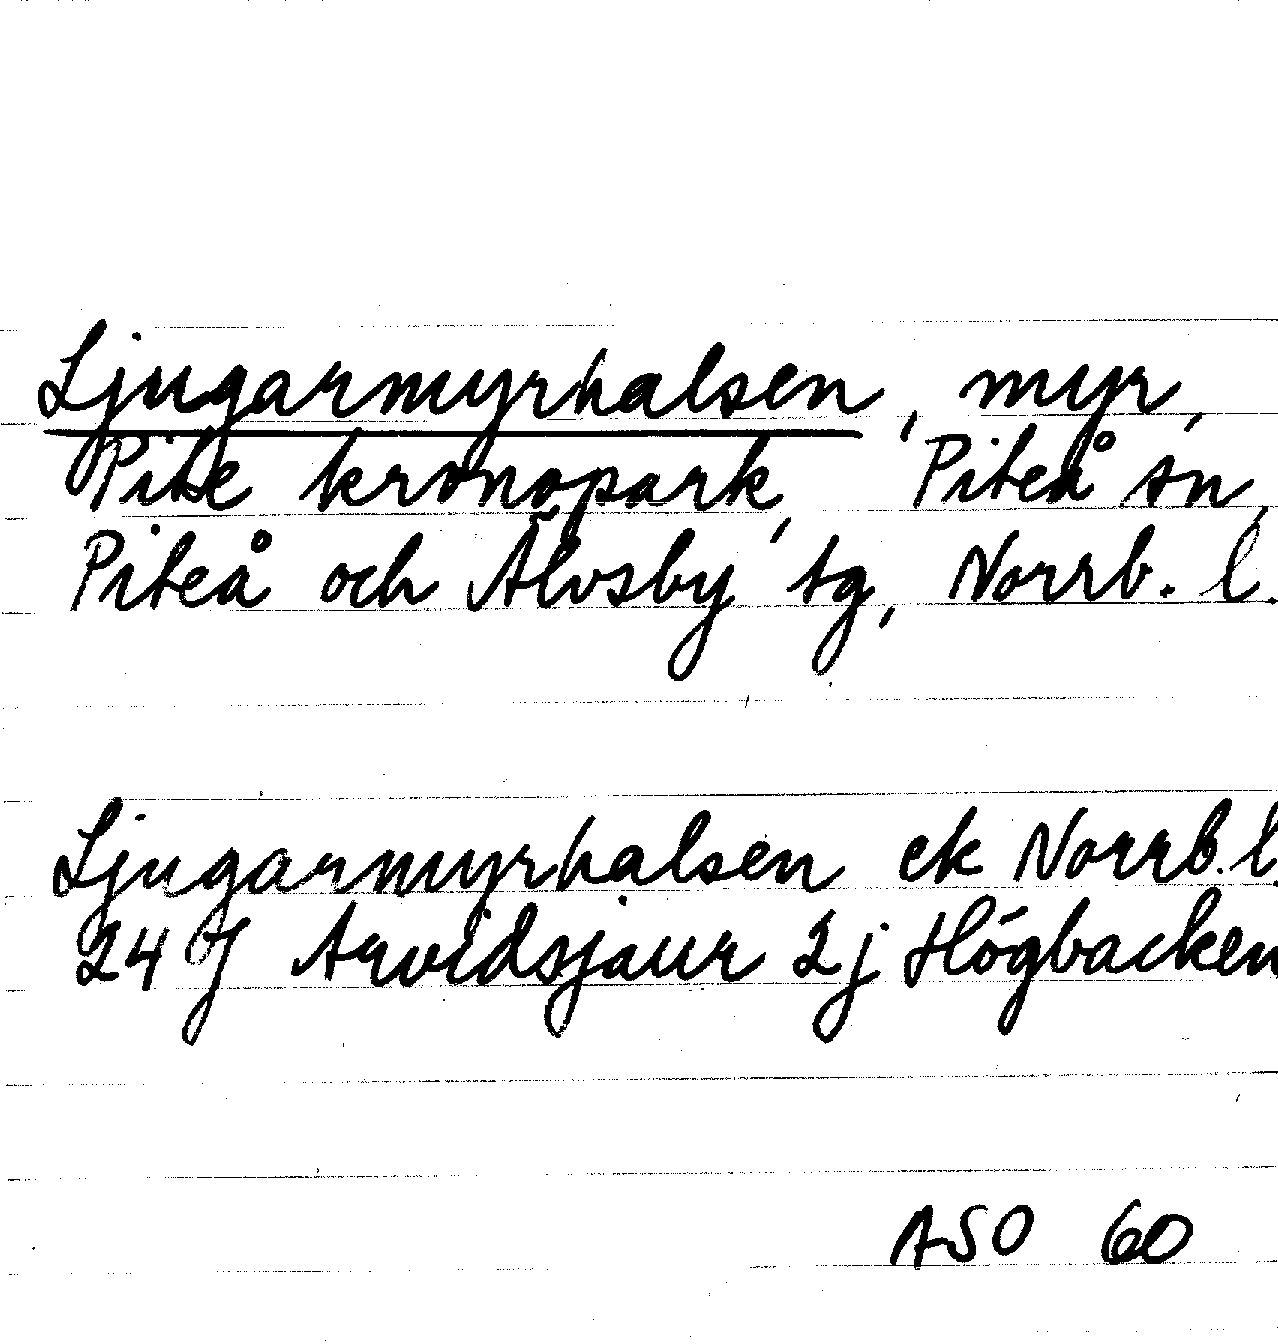 Ljugarmyrhalsen, myr,
Pite kronopark, Piteå sn,
Piteå och Älvsby tg, Norrb. l.
Ljugarmyrhalsen ek Norrb. l.
24 J Arvidsjaur 2j Högbacken
ASO 60